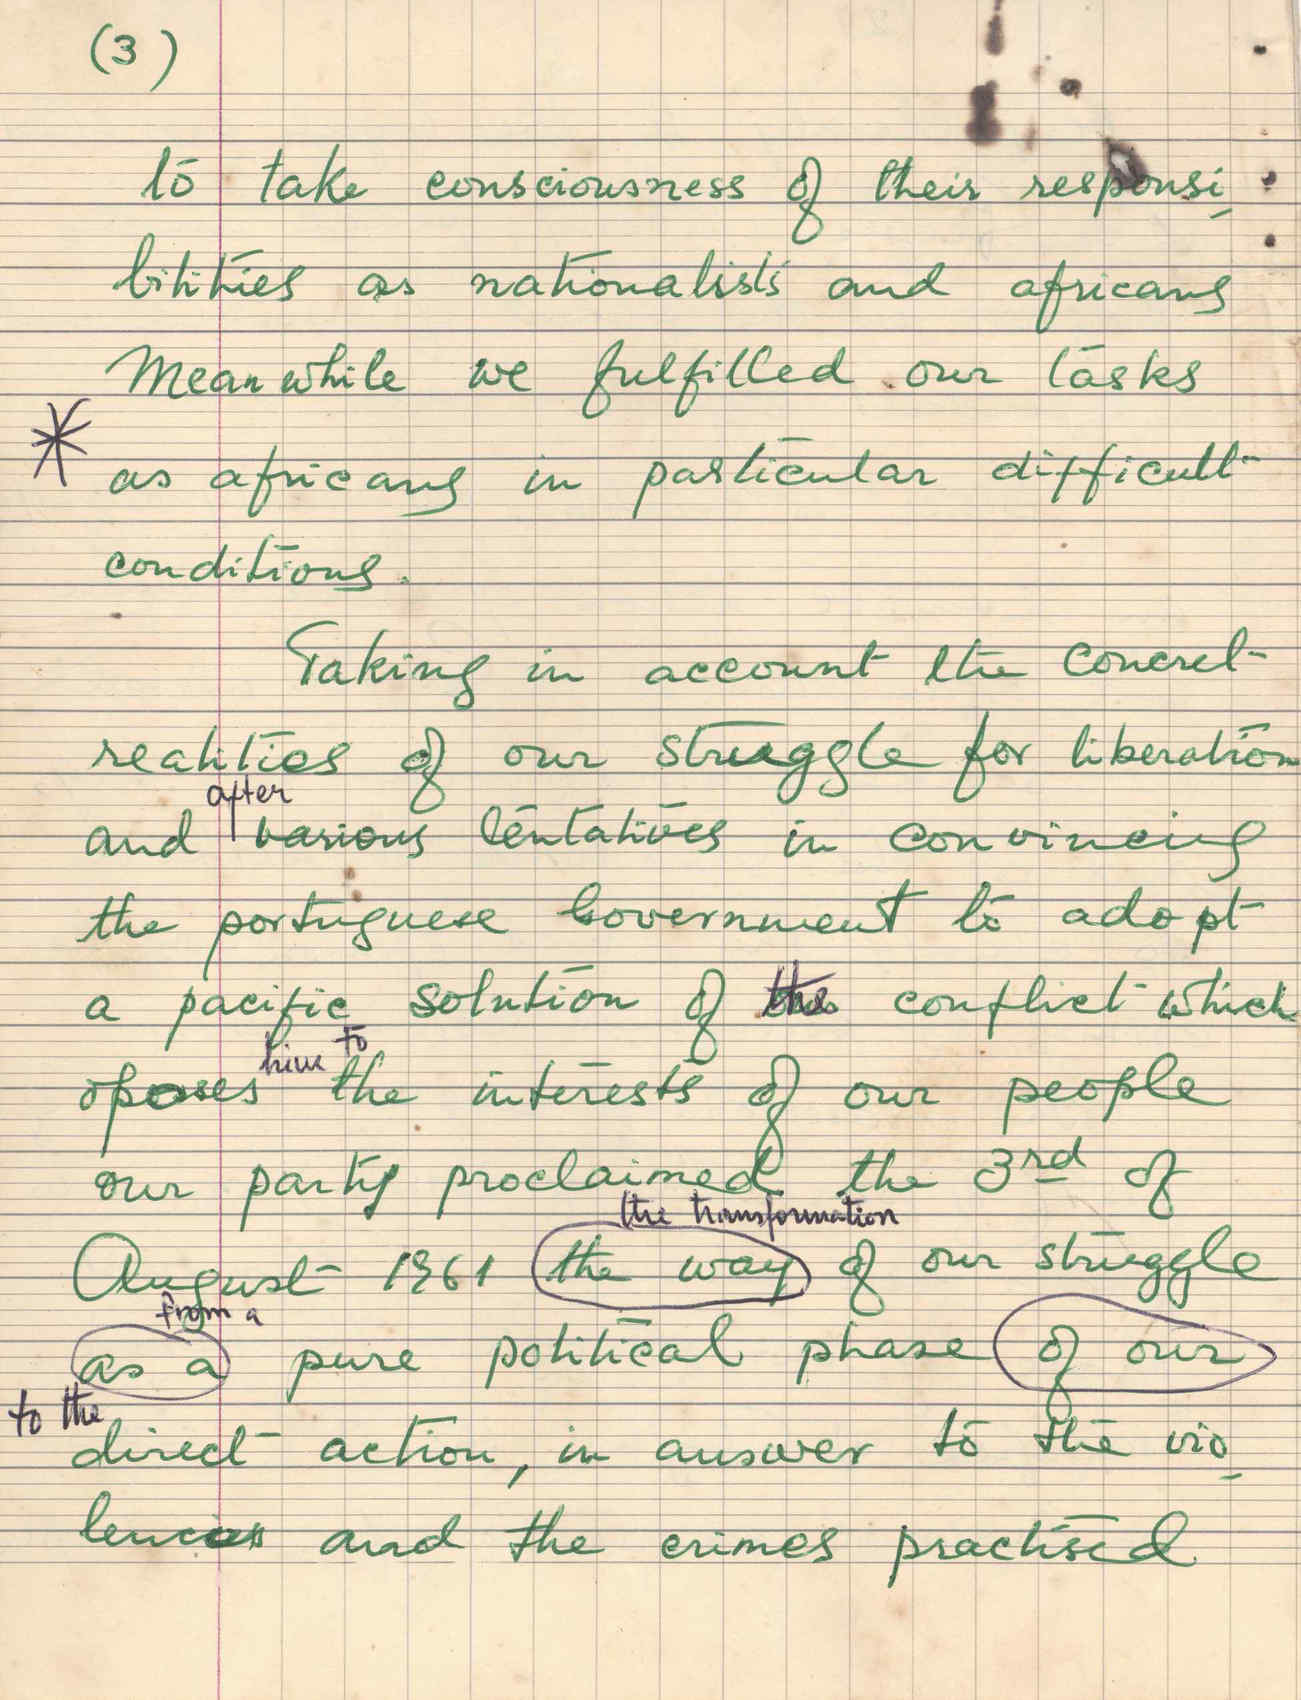 (3)
to take consciousness of their responsi-
bilities as nationalists and africans
Meanwhile we fulfilled our tasks
* as africans in particular difficult
conditions.
Taking in account the concret
realities of our struggle for liberation
after
and various tentatives in convincing
the portuguese Government to adopt
a pacific solution of the conflict which
him to
oposes the interests of our people
our party proclaimed the 3rd of
the transformation
August 1961 the way of our struggle
from a
as a pure political phase of our
to the
direct action, in answer to the vio-
lences and the crimes practised